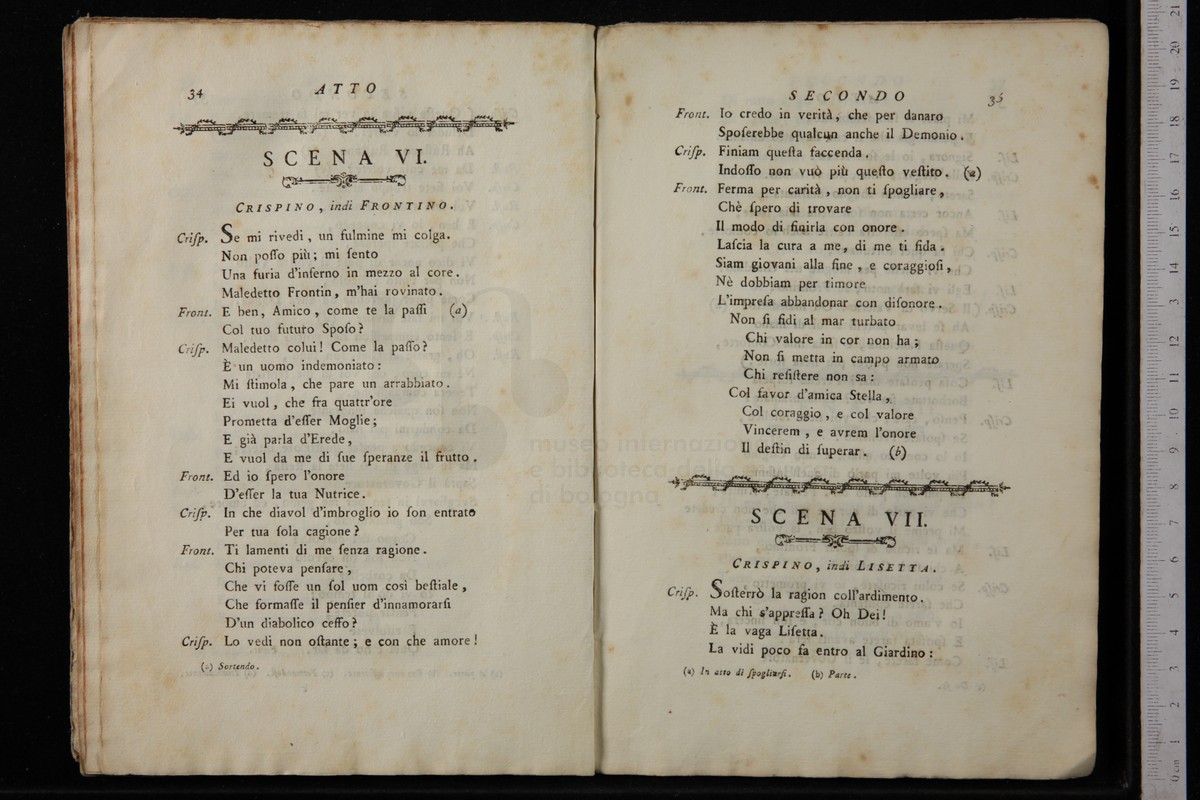 34
ATTO
SCENA VI.
CRISPINO, indi FRONTINO.
Criſp. Se mi rivedi, un fulmine mi colga.
Non poſſo più; mi ſento
Una furia d'inferno in mezzo al core.
Maledetto Frontin, m'hai rovinato.
Front. E ben, Amico, come te la paſſi (a)
Col tuo futuro Spoſo?
Criſp. Maledetto colui! Come la paſſo?
È un uomo indemoniato:
Mi ſtimola, che pare un arrabbiato.
Ei vuol, che fra quattr'ore
Prometta d'eſſer Moglie;
E già parla d'Erede,
E vuol da me di ſue ſperanze il frutto.
Front. Ed io ſpero l'onore
D'eſſer la tua Nutrice.
Criſp. In che diavol d'imbroglio io ſon entrato
Per tua ſola cagione?
Front. Ti lamenti di me ſenza ragione.
Chi poteva penſare,
Che vi foſſe un ſol uom così beſtiale,
Che formaſſe il penſier d'innamorarſi
D'un diabolico ceffo?
Criſp. Lo vedi non oſtante; e con che amore!
(a) Sortendo.
SECONDO
35
Front. Io credo in verità, che per danaro
Spoſerebbe qualcun anche il Demonio.
Criſp. Finiam queſta faccenda.
Indoſſo non vuò più queſto veſtito. (a)
Front. Ferma per carità, non ti ſpogliare,
Chè ſpero di trovare
Il modo di finirla con onore.
Laſcia la cura a me, di me ti fida.
Siam giovani alla fine, e coraggioſi,
Nè dobbiam per timore
L'impreſa abbandonar con diſonore.
Non ſi fidi al mar turbato
Chi valore in cor non ha;
Non ſi metta in campo armato
Chi reſiſtere non sa:
Col favor d'amica Stella,
Col coraggio, e col valore
Vincerem, e avrem l'onore
Il deſtin di ſuperar. (b)
SCENA VII.
CRISPINO, indi LISETTA.
Criſp. Soſterrò la ragion coll'ardimento.
Ma chi s'appreſſa? Oh Dei!
È la vaga Liſetta.
La vidi poco fa entro al Giardino:
(a) In atto di ſpogliarſi. (b) Parte.
museo internazio
e biblioteca della
di bologna